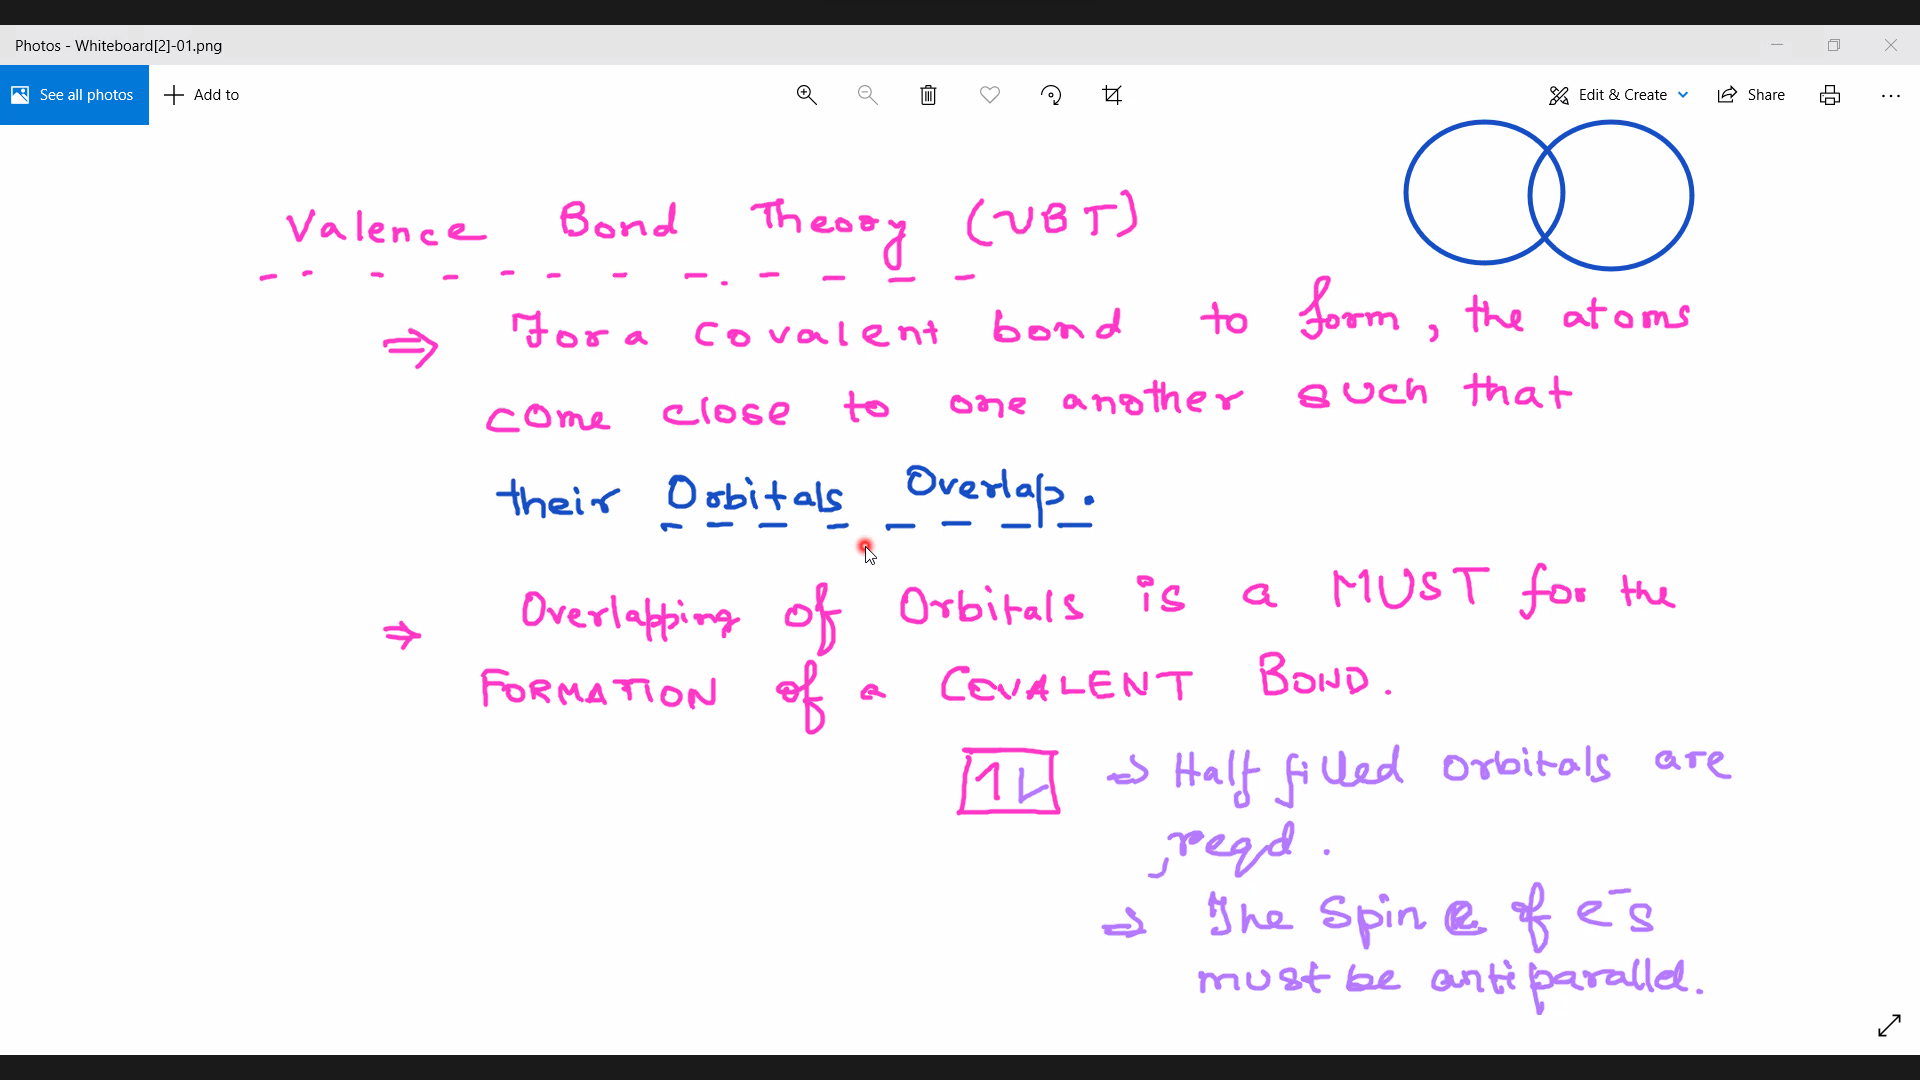 Photos - Whiteboard[2]-01.png
See all photos
Add to
Edit & Create
Share
Valence Bond Theory (VBT)
⇒ For a covalent bond to form, the atoms
come close to one another such that
their Orbitals Overlap.
⇒ Overlapping of Orbitals is a MUST for the
FORMATION of a COVALENT BOND.
1 ⇒ Half filled orbitals are
reqd.
⇒ The Spin of e⁻s
must be antiparallel.